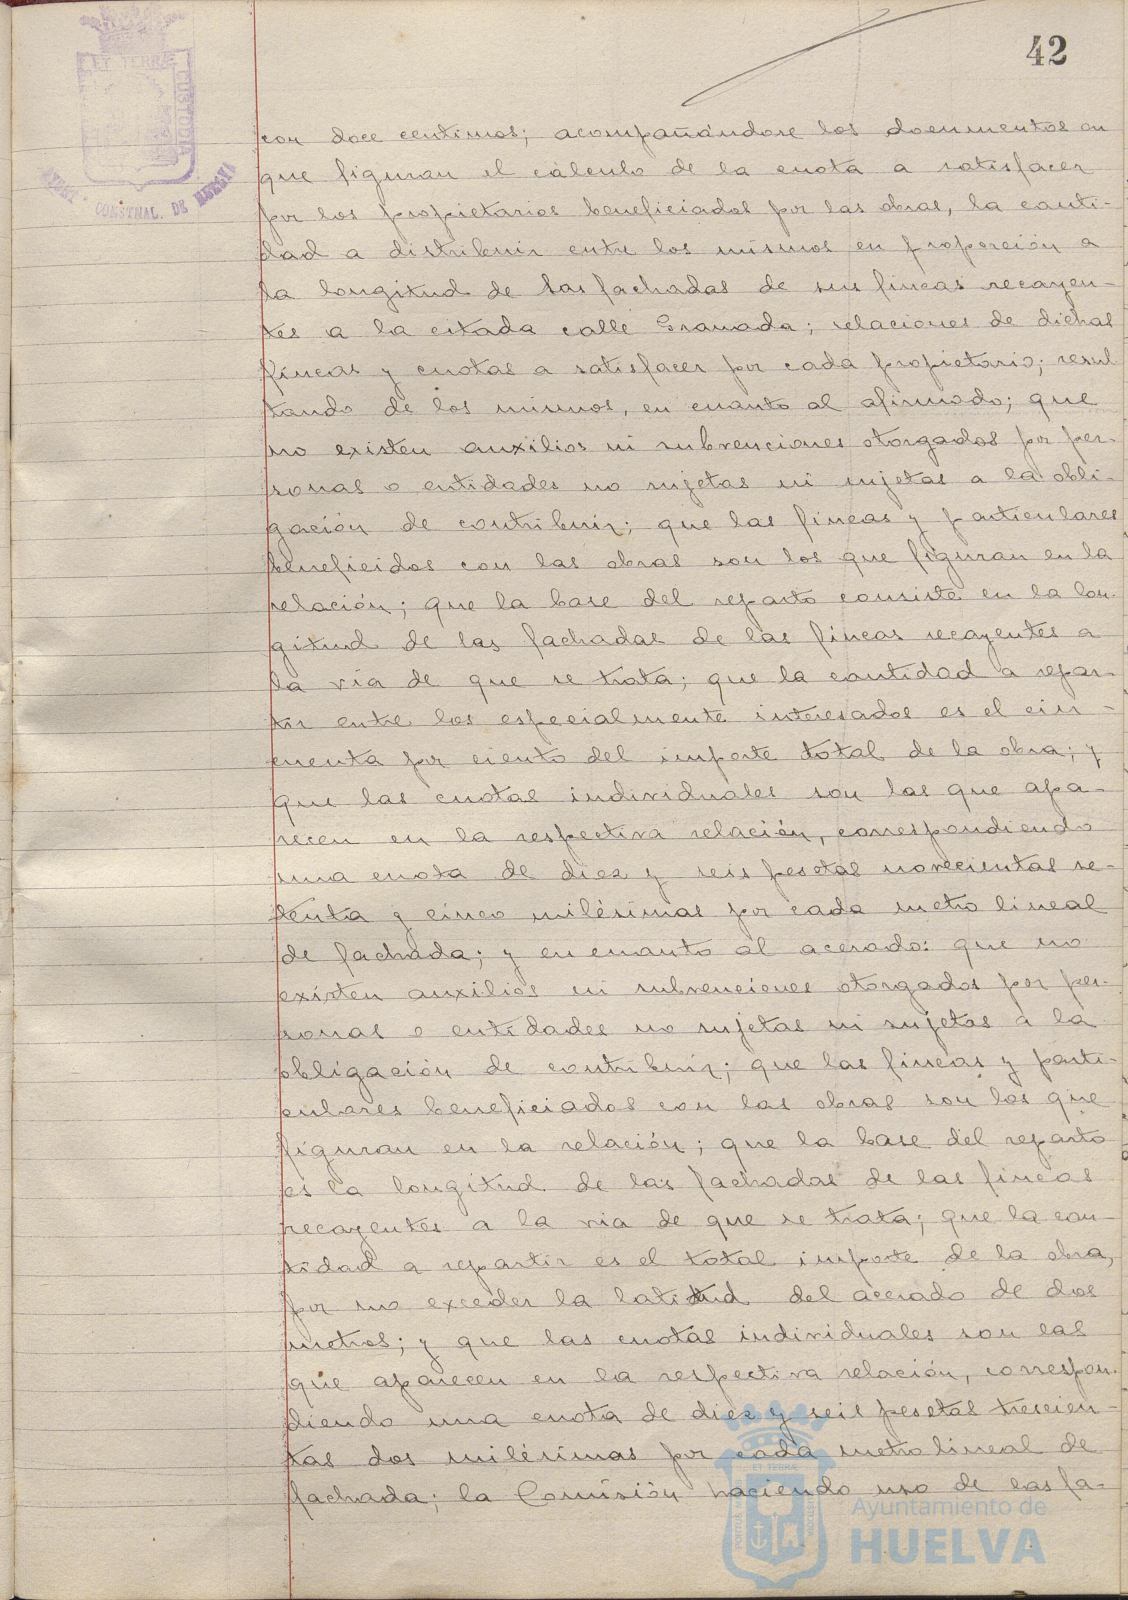 42
ET TERRÆ
CUSTODIA
AYUNT. CONSTNAL. DE HUELVA
con doce centimos; acompañándose los documentos en
que figuran el cálculo de la cuota a satisfacer
por los propietarios beneficiados por las obras, la canti-
dad a distribuir entre los mismos en proporción a
la longitud de las fachadas de sus fincas recayen-
tes a la citada calle Granada; relaciones de dichas
fincas y cuotas a satisfacer por cada propietario; resul
tando de los mismos, en cuanto al afirmado; que
no existen auxilios ni subvenciones otorgados por per-
sonas o entidades no sujetas ni sujetas a la obli-
gación de contribuir; que las fincas y particulares
beneficidos con las obras son los que figuran en la
relación; que la base del reparto consiste en la lon-
gitud de las fachadas de las fincas recayentes a
la via de que se trata; que la cantidad a repar-
tir entre los especialmente interesados es el cin-
cuenta por ciento del importe total de la obra; y
que las cuotas individuales son las que apa-
recen en la respectiva relación, correspondiendo
una cuota de diez y seis pesetas novecientas se-
tenta y cinco milésimas por cada metro lineal
de fachada; y en cuanto al acerado: que no
existen auxilios ni subvenciones otorgados por per-
sonas o entidades no sujetas ni sujetas a la
obligación de contribuir; que las fincas y parti-
culares beneficiados con las obras son los que
figuran en la relación; que la base del reparto
es la longitud de las fachadas de las fincas
recayentes a la via de que se trata; que la can-
tidad a repartir es el total importe de la obra,
por no exceder la latitud del acerado de dos
metros; y que las cuotas individuales son las
que aparecen en la respectiva relación, correspon-
diendo una cuota de diez y seis pesetas trescien-
tas dos milésimas por cada metro lineal de
fachada; la Comisión haciendo uso de las fa-
Ayuntamiento de
HUELVA